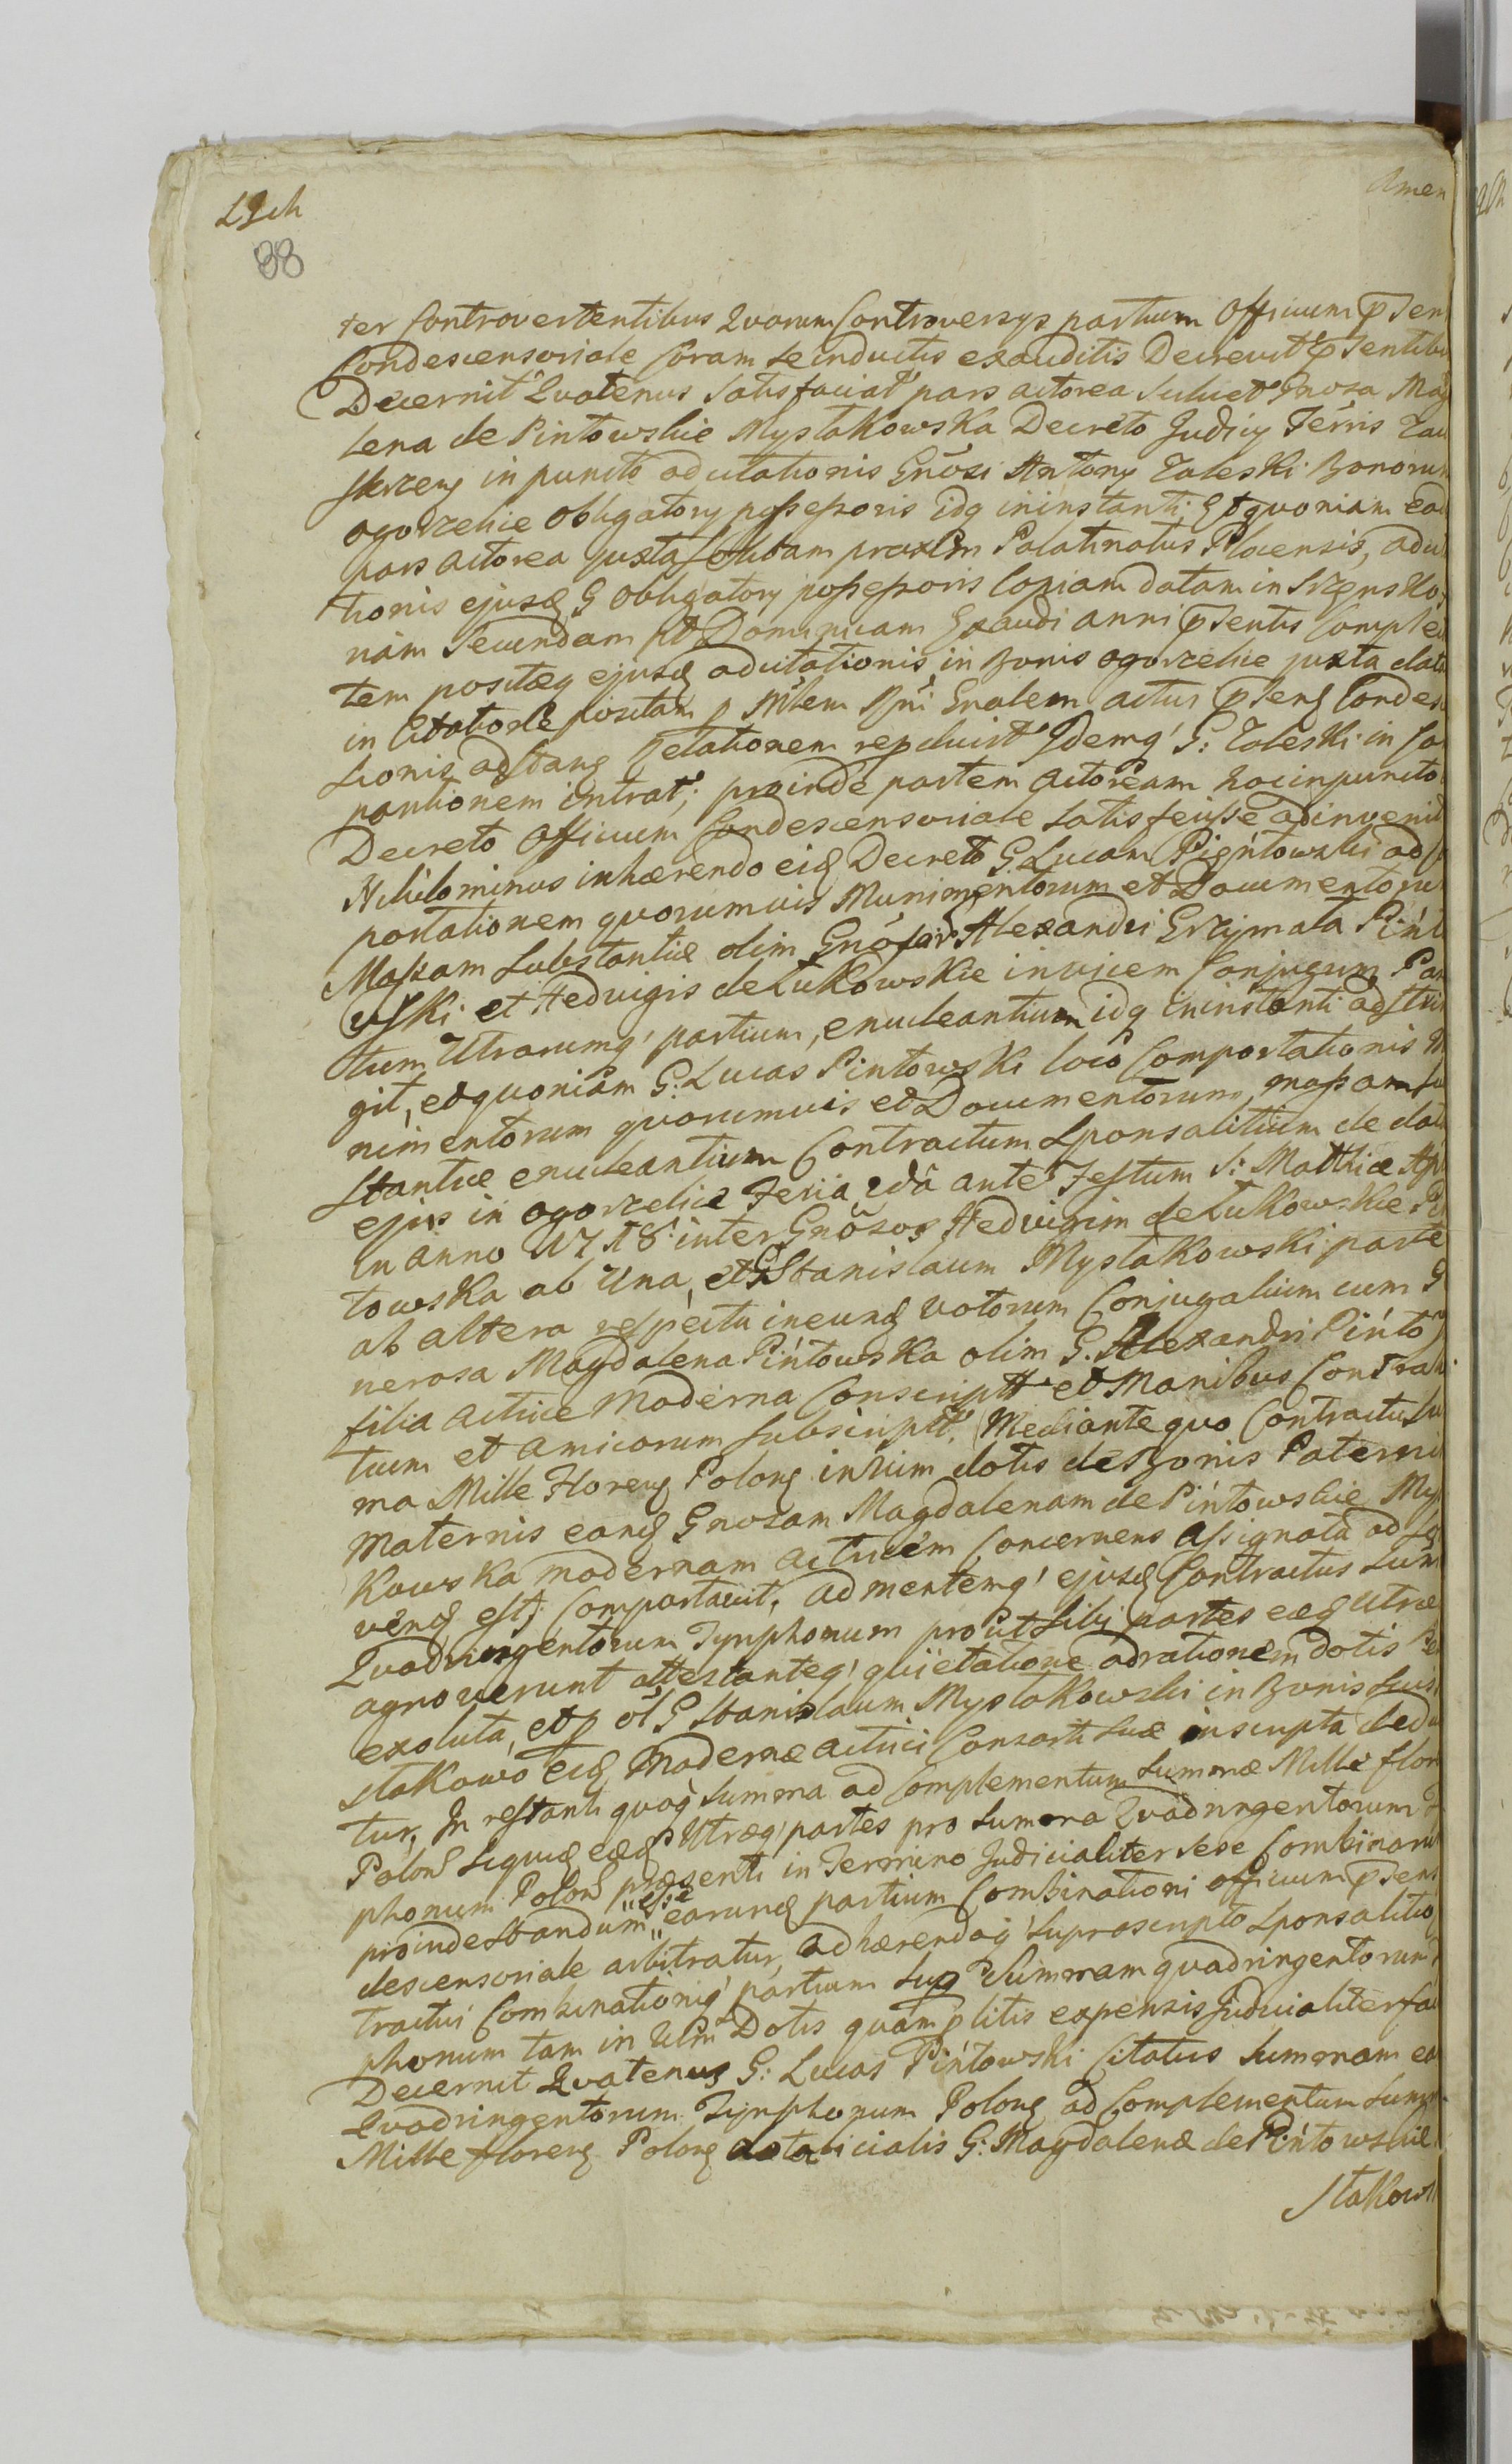 Amen
LSch
88
ter Controvertentibus Quorum Controversys partium Officium pnsen
Condescensoriale Coram se inductis exauditis Decrevit et pnsentibu
Decernit Quatenus Satisfaciat pars actorea Scilicet Gnosa Mag
lena de Pintowskie Mystakowska Decreto Judicy Terris Zau
skrzeng in puncto adcitationis Gnosi Antony Zaleski Bonorum
Ogorzelice Obligatory possessoris idq ininstanti Et quoniam ead
pars actorea juxta solitam praxim Palatinatus Plocensis, adci
tionis ejusd G Obligatory possessoris Copiam datam in Srzensko
riam Secundam pt Dominicam Exaudi anni pnsentis Complet
tem positaq ejusd adcitationis in Bonis Ogorzelice juxta data
in Citatione positam p Mlem Rni Gnalem actus pnsens Condes
tionis adstans Relationem reproduxit Idemq G: Zaleski in Co
partionem intrat; proinde partem Actoream hoc in puncto
Decreto Officium Condescensoriale satisfecisse adinvenit
Nihilominus inhærendo eid Decreto G Lucam Pientowski ad
portationem quorumvis Munimentorum et Documentoru
Massam Substantiæ olim Gnosor Alexandri Grzymala Pint
wski et Hedvigis de Lukowskie invicem Conjugum Par
tum Utrarumq partium, enucleantium idq ininstanti adstrin
git, et quoniam G: Lucas Pintowski loco Comportationis M
nimentorum quorumvis et Documentorum, massam su
stantiæ enucleantium Contractum Sponsalitium de data
ejus in Ogorzelice Feria 2da ante Festum S: Matthiæ Apl
in anno 1718 inter Gnosos Hedvigim de Lukowskie Pi
towska ab una, et G Stanislaum Mystakowski parte
ab altera respectu ineund votorum Conjugalium cum G
nerosa Magdalena Pintowska olim G. Alexandri Pinto
filia actrice moderna Conscriptt et Manibus Contrahe
tium et amicorum Subscriptt, Mediante quo Contractu Su
ma Mille Floreng Polong in vim dotis de Bonis Paterni
Maternis eand Gnosam Magdalenam de Pintowskie Mys
kowska modernam actricem Concernens Assignata ad
vend est; Comportavit, ad mentemq ejusd Contractus Sum
Quadringentorum Tynphonum prout Sibi partes eæd Utræ
agnoverunt attestanteq quietatione ad rationem dotis per
exoluta, et p ol G Stanislaum Mystakowski in Bonis Suis
stakowo eid Modernæ actrici Consorti Suæ inscripta dedu
tur, In restanti quoq Summa ad Complementum Summæ Mille flor
Polon Siquid eæd Utræq partes pro Summa Quadringentorum T
phonum Polon præsenti in Termino Judicialiter Sese Combinaru
proinde Standum esse earund partium Combinationi officium pnsens
descensoriale arbitratur, adhærendoq Suprascripto Sponsalitio
tractui Combinationiq partium Sup Summam quadringentorum
phonum tam in Vim Dotis quam plitis expensis Judicialiter fac
Decernit Quatenus G: Lucas Pintowski Citatus Summam ea
Quadringentorum Tynphonum Polong ad Complementum Summ
Mille floreng Polong dotalicialis G: Magdalenæ de Pintowskie
stakows